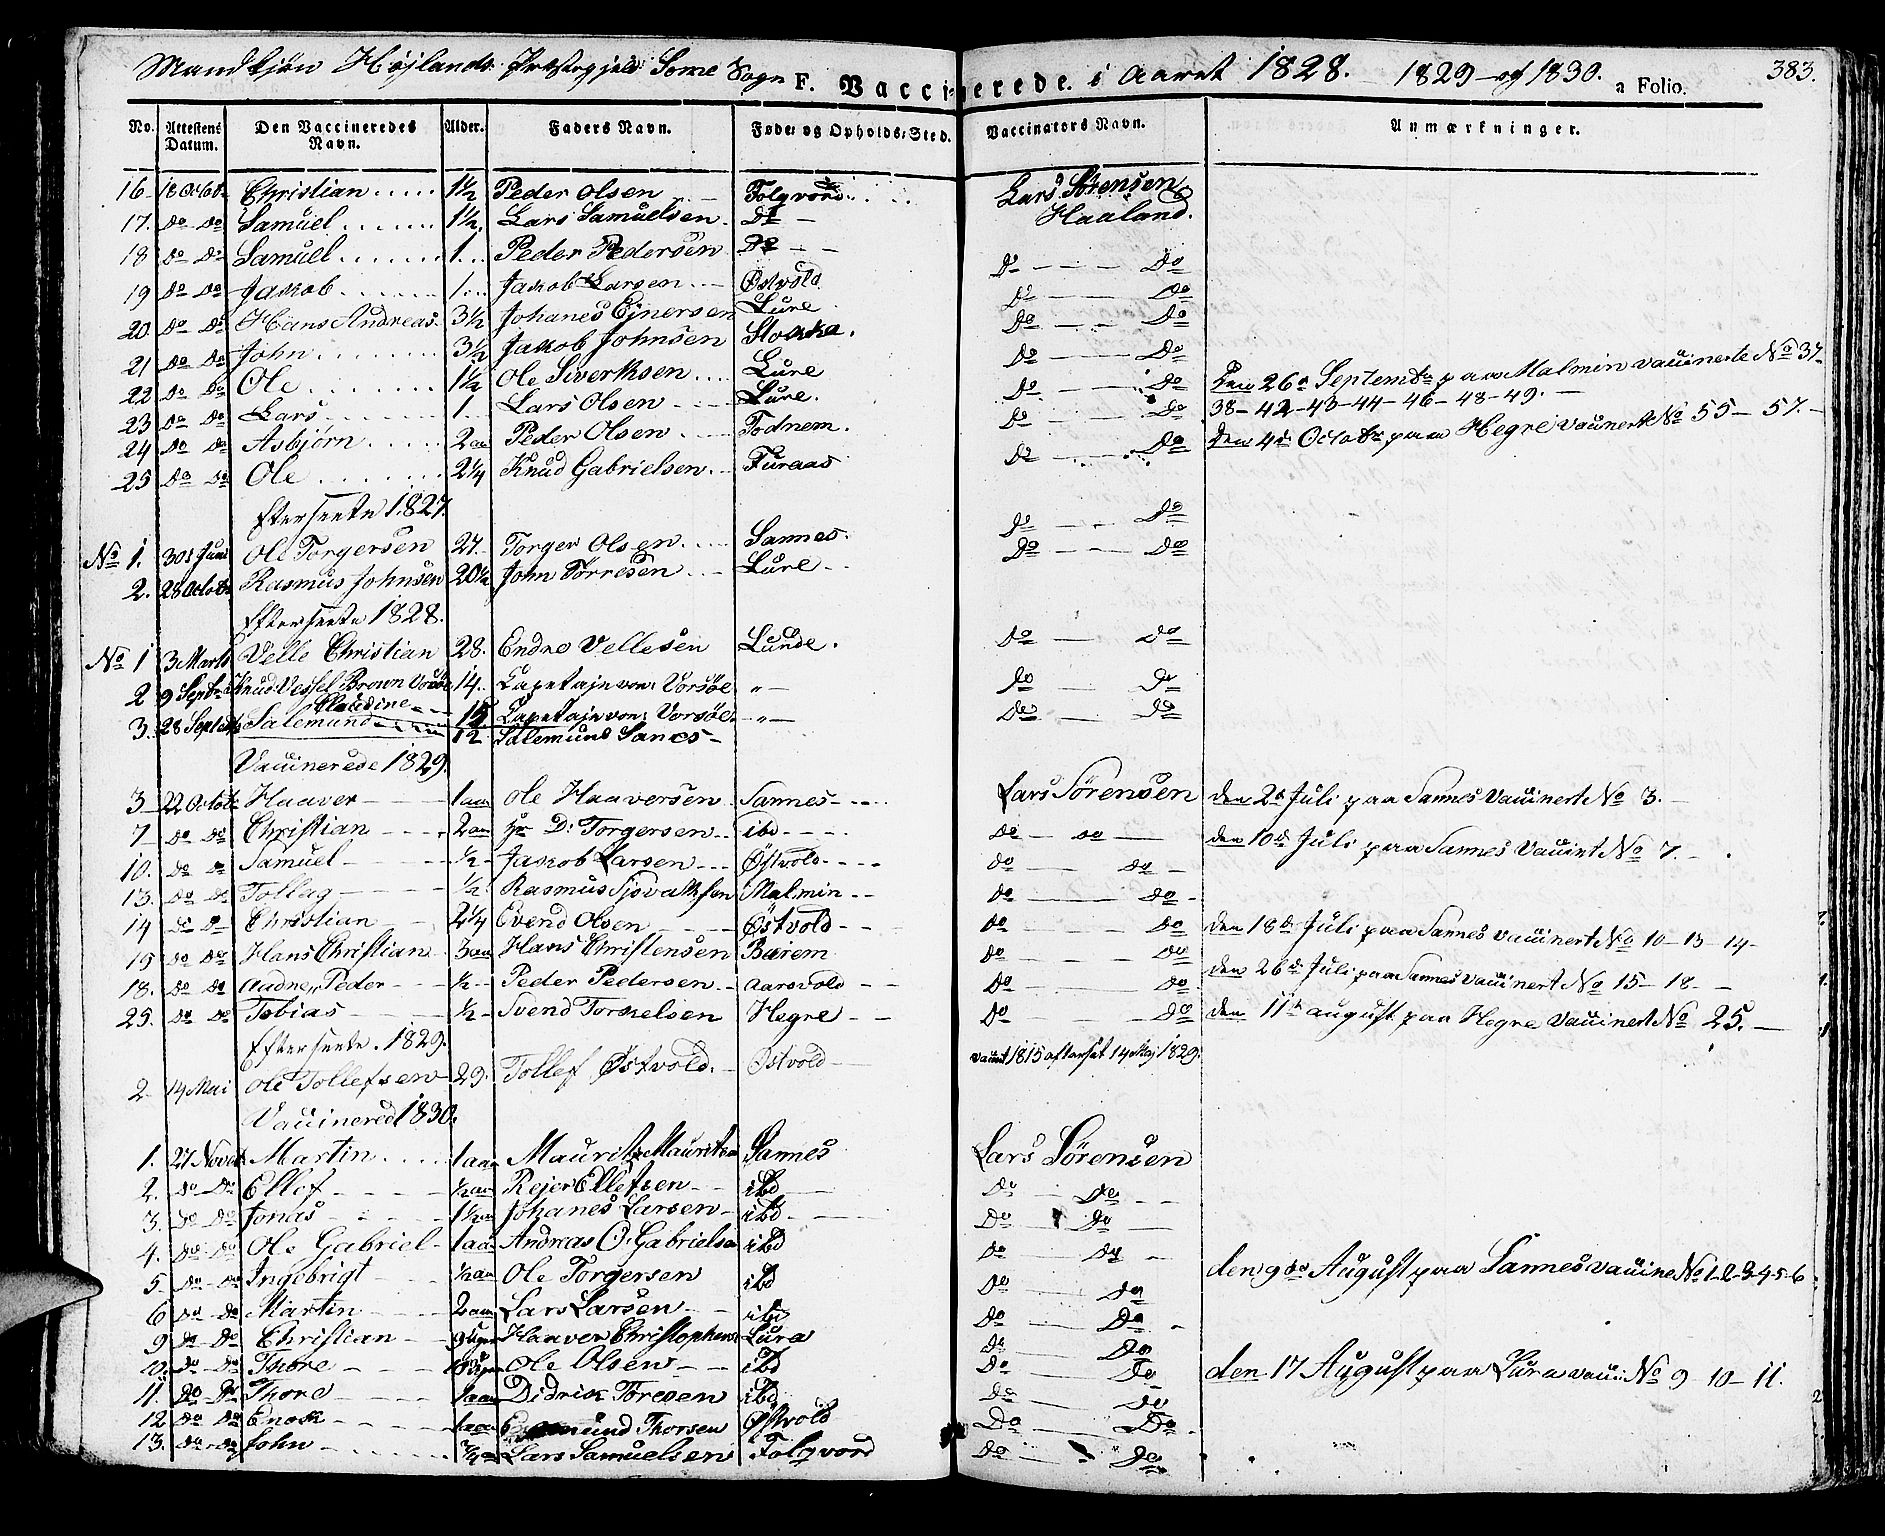 Mandkjön Højlands Præstegjeld Some Sogn F. Vaccinerede. i Aaret 1828. 1829 og 1830. a Folio. 383.
No. Attestens Datum. Den Vaccineredes Navn. Alder. Faders Navn. Føde- og Opholds-Sted. Vaccinators Navn. Anmærkninger.
16 18 Octob. Christian 1½ Peder Olsen Folqvord Lars Sörensen
17. Do Do Samuel 1½ Lars Samuelsen Do Haaland.
18 Do Do Samuel 1 Peder Pedersen Do Do Do
19 Do Do Jakob 1 Jakob Larsen Østvold Do Do
20 Do Do Hans Andreas 3½ Johanes Ejnersen Lure Do Do
21 Do Do John 3½ Jakob Johnsen Stokka. Do Do
22 Do Do Ole 1½ Ole Siverksen Lure Do Do Den 26de Septembr paa Malmin vaccinerte No 37
23 Do Do Lars 1 Lars Olsen Lure. Do Do 38-42-43-44-46-48-49.
24 Do Do Asbjörn 2 aar Peder Olsen Todnem. Do Do Den 4de Octobr paa Hegre vaccinert No 55-57.
25 Do Do Ole 2¼ Knud Gabrielsen Furaas
Efterseete 1827. Do Do
No 1. 30 Juni Ole Torgersen 27. Torger Olsen Sannes. Do Do
2. 28 Octobr Rasmus Johnsen 20½ John Törresen Lure
Efterseete 1828.
No 1 3 Marts Velle Christian 28. Endre Vellesen Lunde. Do Do
2 9 Septbr Knud Vessel Brown Vorsöe 14. Capetajn von Vorsöe " Do Do
Claudine 15 Capetajn von Vorsöe " Do Do
3. 28 Septembr Salemund 12 Salemund Sanes
Vaccinerede 1829.
3 22 Octobr Haaver 1 aar Ole Haaversen Sannes Lars Sörensen den 2de Juli paa Sannes Vaccinert No 3.
7 Do Do Christian 2 aar Hr D: Torgersen ibd Do Do den 10de Juli paa Sannes Vaccint No 7.
10. Do Do Samuel ½ Jakob Larsen Østvold Do Do
13. Do Do Tollag ½ Rasmus Malmin Do Do
14 Do Do Christian 2¼ Evend Olsen Østvold Do Do den 18de Juli paa Sannes vaccinert No 10-13-14
15 Do Do Hans Christian 3 aar Hans Christensen Bärem Do Do
18. Do Do Peder ½ Peder Pedersen Aarsvold Do Do den 26de Juli paa Sannes vaccinert No 15-18
25. Do Do Tobias ½ Svend Torkelsen Hegre Do Do den 11te august paa Hegre vaccinert No 25.
Efterseete. 1829.
2 14 Mai Ole Tollefsen 29. Tollef Østvold. Østvold vaccint 1815 efterset 14 Maj 1829.
Vaccinered 1830.
1. 27 Novbr Martin 1 aar Maurits Mauritsen Sannes Lars Sörensen
2. Do Do Ellef ½ aar Rejer Ellefsen ibd Do Do
3. Do Do Jonas 1½ aar Johanes Larsen ibd Do Do
4. Do Do Ole Gabriel 1 aar Andreas O. Gabrielsen ibd Do Do
5 Do Do Ingebrigt ½ aar Ole Torgersen ibd Do Do den 9de August paa Sannes vaccine No 1-2-3-4-5-6
6 Do Do Martin 2 aar Lars Larsen ibd Do Do
9 Do Do Christian 9 Uger Haaver Christophersen Lura Do Do
10 Do Do Thore Uger Ole Olsen ibd Do Do den 17 August paa Lura vacci No 9-10-11.
11. Do Do Thore 1 aar Didrik Töresen ibd. Do Do
12 Do Do Enok 1 aar Thorsen Østvold Do Do
13. Do Do John ¾ Lars Samuelsen Folqvord Do Do